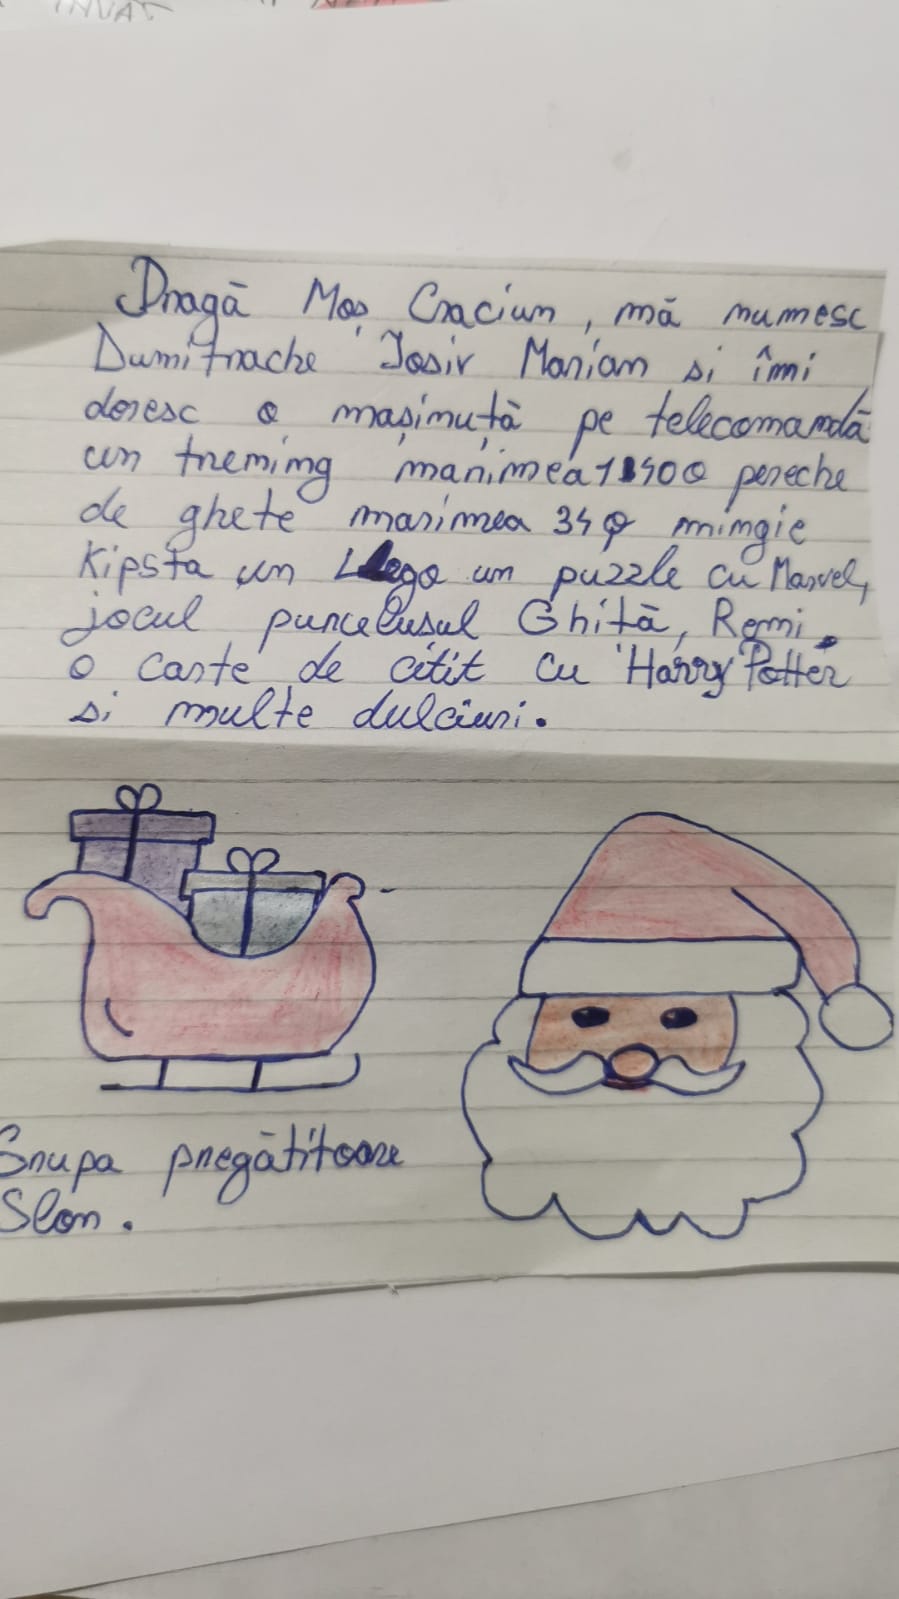 INVAT
Dragā Moș Craciun, mā numesc
Dumitrache Iosir Marian si îmi
doresc o mașinuțā pe telecomandā
un trening marimea 140 O pereche
de ghete marimea 34 O mingie
Kipsta un Lego un puzzle cu Marvel,
jocul purcelusul Ghițā, Remi.
o carte de citit cu Harry Potter
si multe dulciuri.
Grupa pregātitoare
Slon.